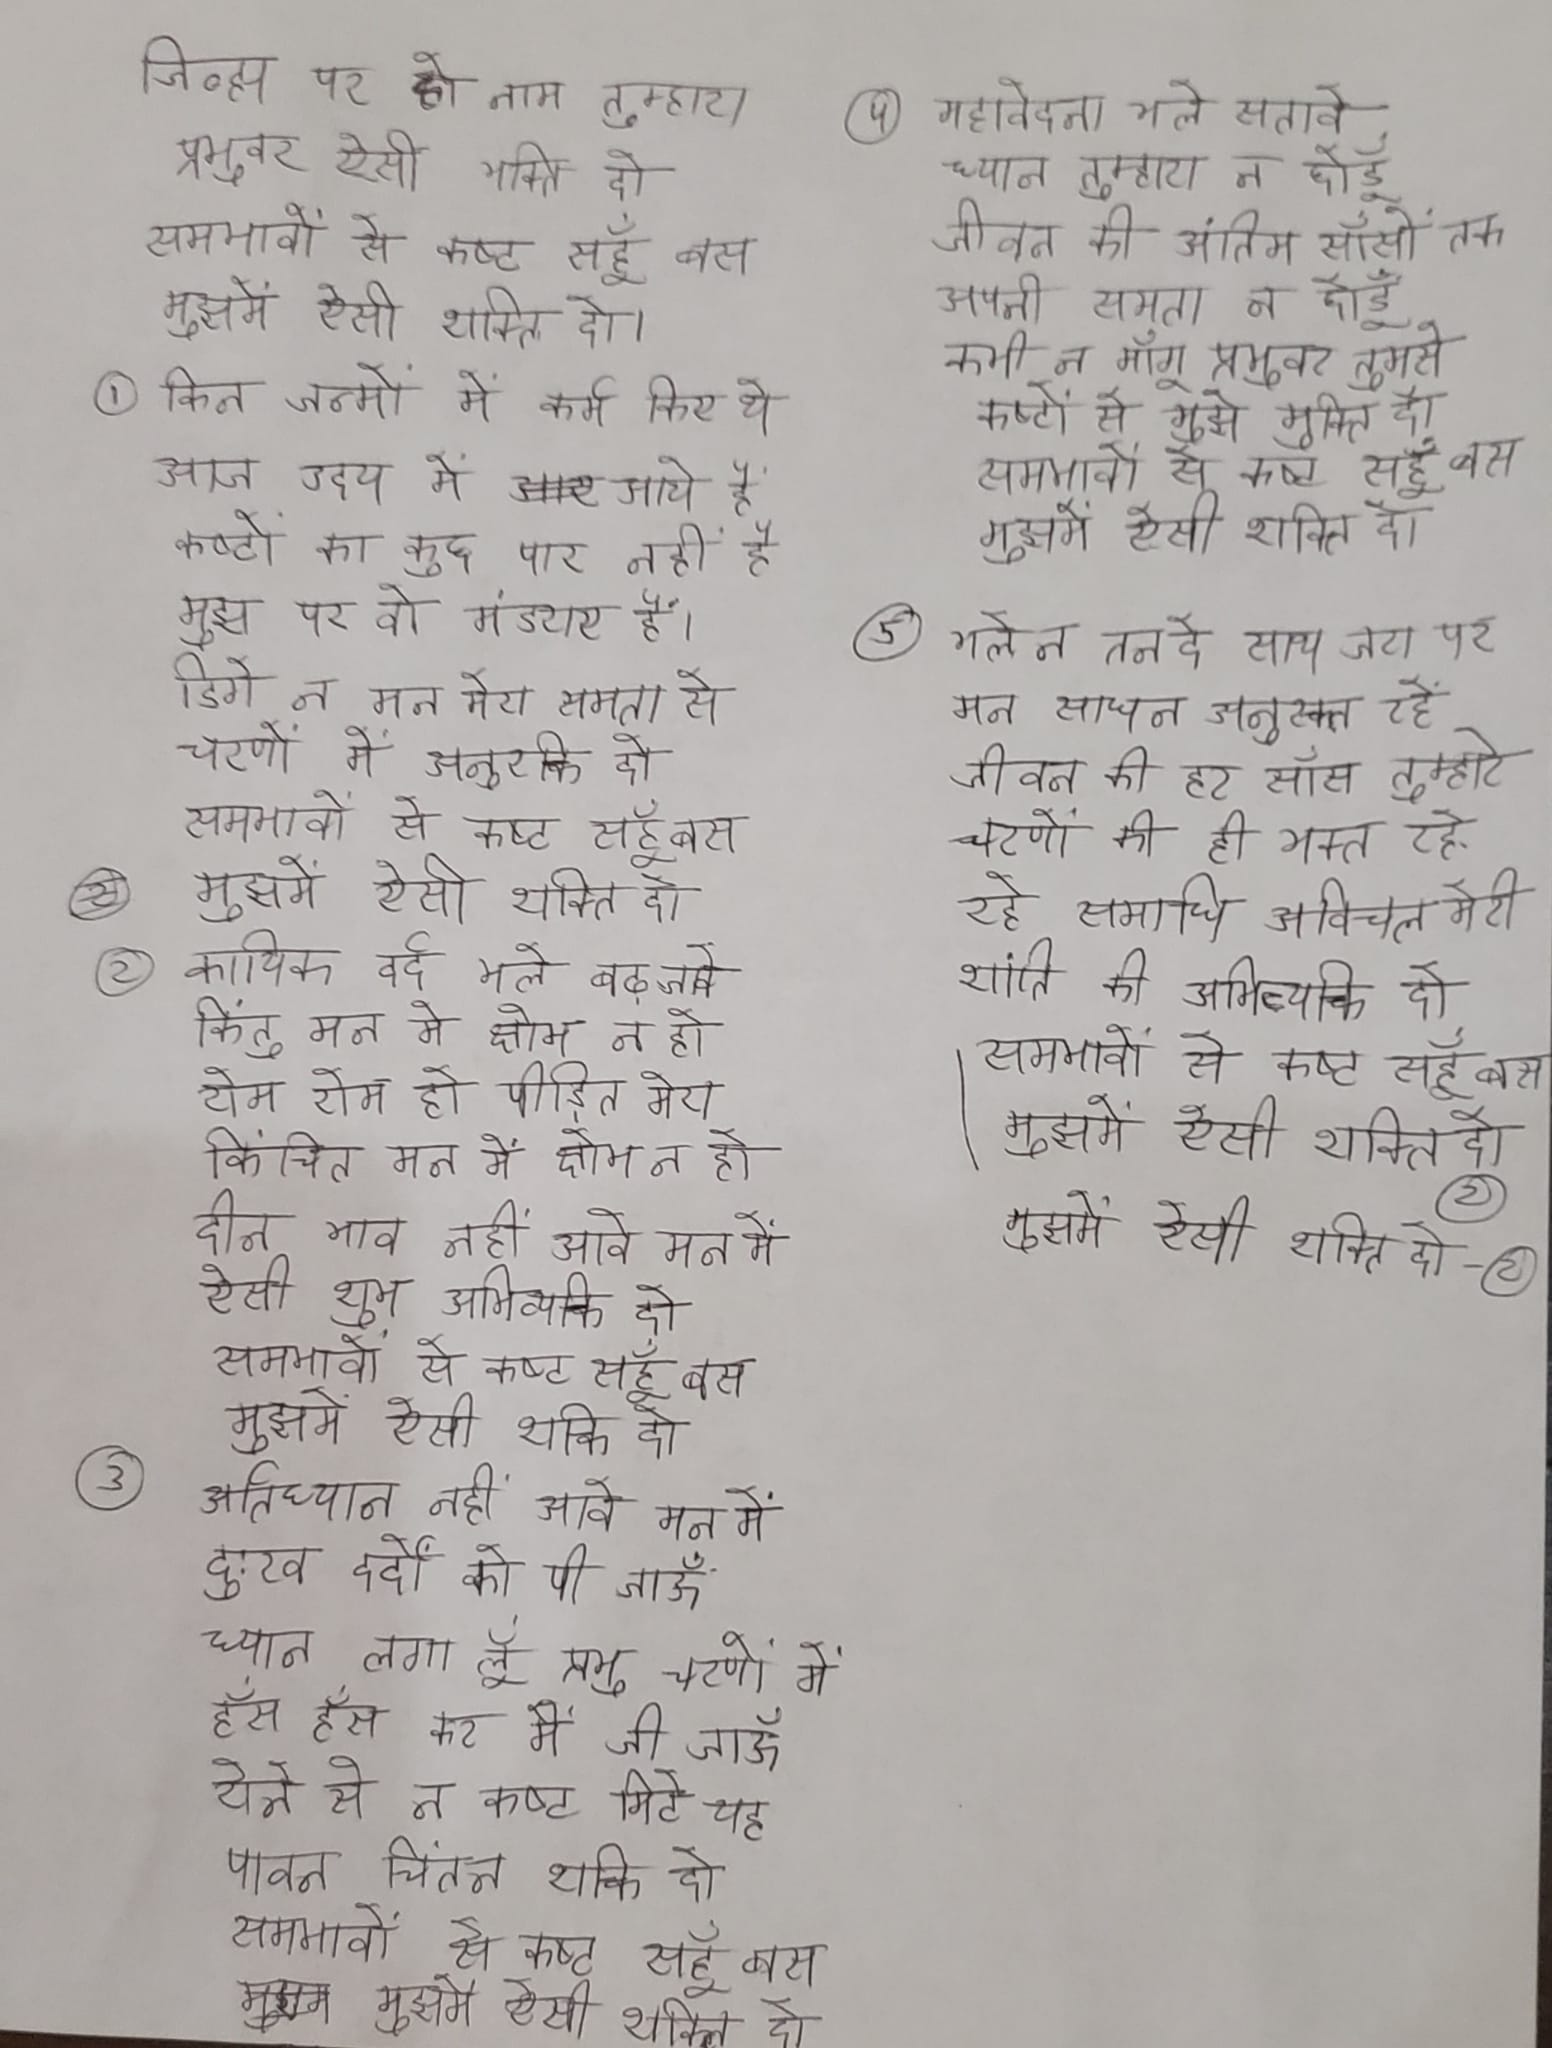 जिव्हा पर हो नाम तुम्हारा
प्रभुवर ऐसी भक्ति दो
समभावों से कष्ट सहूँ बस
मुझमें ऐसी शक्ति दो।
① किन जन्मों में कर्म किए थे
आज उदय में आये हैं
कष्टों का कुछ पार नहीं है
मुझ पर वो मंडराए हैं।
डिगे न मन मेरा समता से
चरणों में अनुरक्ति दो
समभावों से कष्ट सहूँ बस
मुझमें ऐसी शक्ति दो
② कायिक दर्द भले बढ़ जावे
किंतु मन मे क्षोभ न हो
रोम रोम हो पीड़ित मेरा
किंचित मन में क्षोभ न हो
दीन भाव नहीं आवे मन में
ऐसी शुभ अभिव्यक्ति दो
समभावों से कष्ट सहूँ बस
मुझमें ऐसी शक्ति दो
③ अर्तिध्यान नहीं आवे मन में
दुःख दर्दों को पी जाऊँ
ध्यान लगा लूँ प्रभु चरणों में
हँस हँस कर मैं जी जाऊँ
रोने से न कष्ट मिटे यह
पावन चिंतन शक्ति दो
समभावों से कष्ट सहूँ बस
मुझमें ऐसी शक्ति दो
④ महावेदना भले सतावे
ध्यान तुम्हारा न छोडूँ
जीवन की अंतिम साँसों तक
अपनी समता न छोडूँ
कभी न माँगू प्रभुवर तुमसे
कष्टों से मुझे मुक्ति दो
समभावों से कष्ट सहूँ बस
मुझमें ऐसी शक्ति दो
⑤ भले न तन दे साथ जरा पर
मन साधन अनुरक्त रहें
जीवन की हर साँस तुम्हारे
चरणों की ही भक्त रहे
रहे समाधि अविचल मेरी
शांति की अभिव्यक्ति दो
समभावों से कष्ट सहूँ बस
मुझमें ऐसी शक्ति दो
②
मुझमें ऐसी शक्ति दो - ②